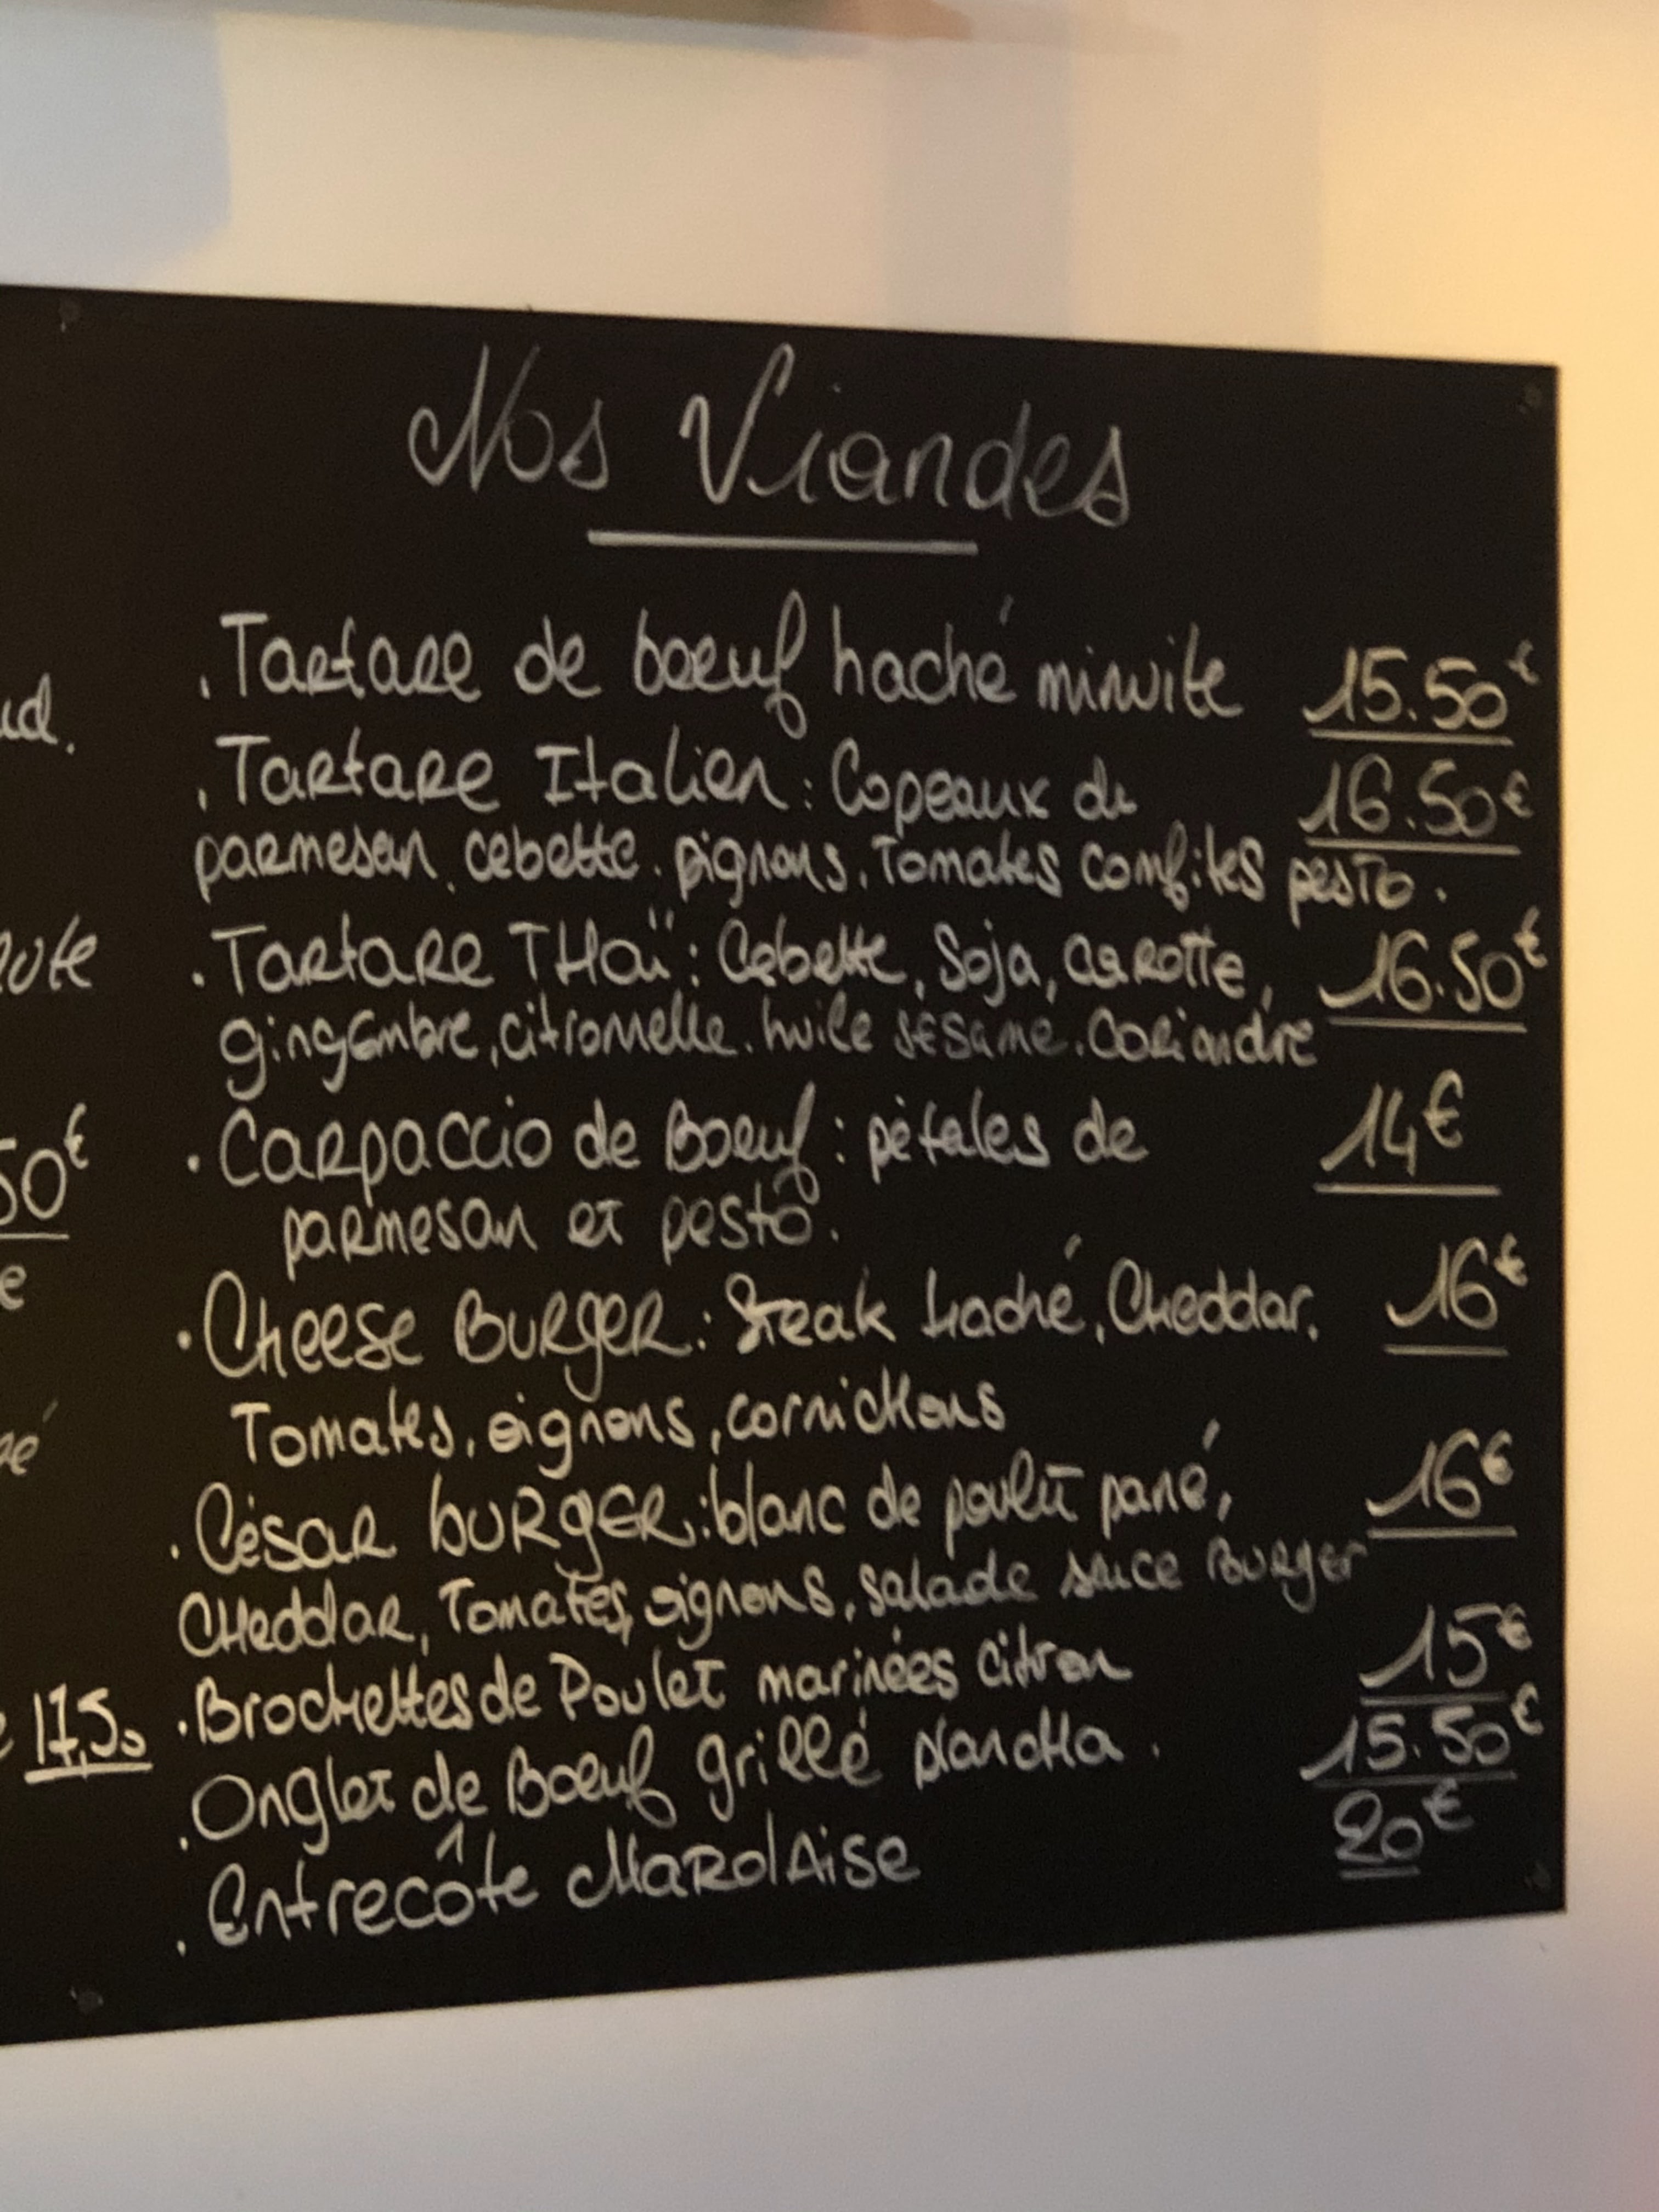 Nos Viandes
. Tartare de boeuf haché minuite 15.50€
. Tartare Italien : Copeaux de 16.50€
parmesan. cebette. pignons. Tomates confites pesto.
. Tartare THaï : Cebette, Soja, carotte, 16.50€
gingembre, citronnelle. huile sésame. Coriandre
. Carpaccio de Boeuf : pétales de 14€
parmesan et pesto.
. Cheese Burger : Steak haché, Cheddar. 16€
Tomates, oignons, cornicHons
. César burger : blanc de poulet pané, 16€
CHeddar, Tomates, oignons, salade sauce Burger
. BrocHettes de Poulet marinées citron 15€
. Onglet de Boeuf grillé plancHa. 15.50€
. Entrecôte Charolaise 20€
ud.
50€
e
17,50